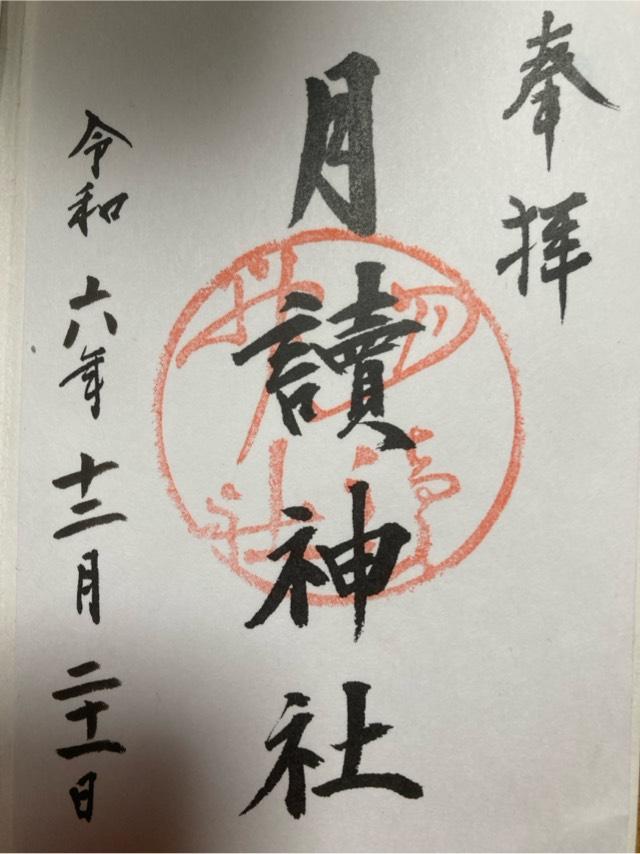 奉拝
月讀神社
令和六年十二月二十一日